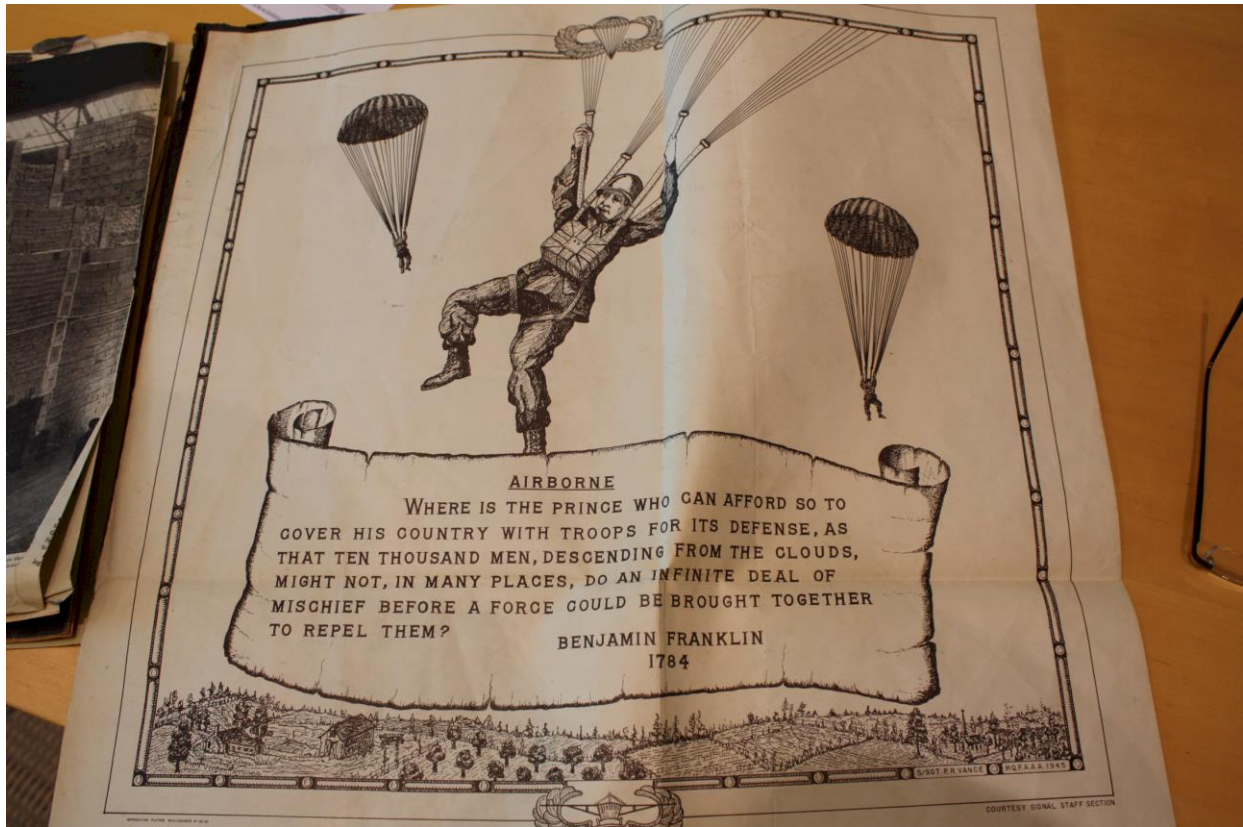 AIRBORNE
WHERE IS THE PRINCE WHO CAN AFFORD SO TO
COVER HIS COUNTRY WITH TROOPS FOR ITS DEFENSE, AS
THAT TEN THOUSAND MEN, DESCENDING FROM THE CLOUDS,
MIGHT NOT, IN MANY PLACES, DO AN INFINITE DEAL OF
MISCHIEF BEFORE A FORCE COULD BE BROUGHT TOGETHER
TO REPEL THEM?
BENJAMIN FRANKLIN
1784
S/SGT P.R. VANCE
HQ. F.A.A.A. 1945
COURTESY SIGNAL STAFF SECTION